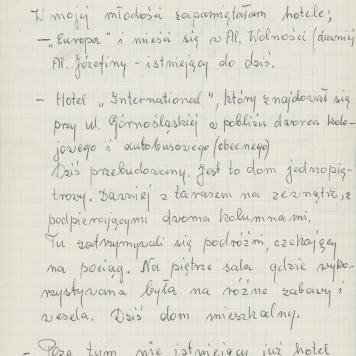 W mojej młodości zapamiętałam hotele;
– „Europa" i mieści się w Al. Wolności (dawniej
Al. Józefiny – istniejący do dziś.
– Hotel „International", który znajdował się
przy ul. Górnośląskiej w pobliżu dworca kole-
jowego i autobusowego (obecnego)
Dziś przebudowany. Jest to dom jednopię-
trowy. Dawniej z tarasem na zewnątrz, z
podpierającymi dwoma kolumnami.
Tu zatrzymywali się podróżni, czekający
na pociąg. Na piętrze sala gdzie wyko-
rzystywana była na różne zabawy i
wesela. Dziś dom mieszkalny.
– Poza tym nie istniejący już hotel